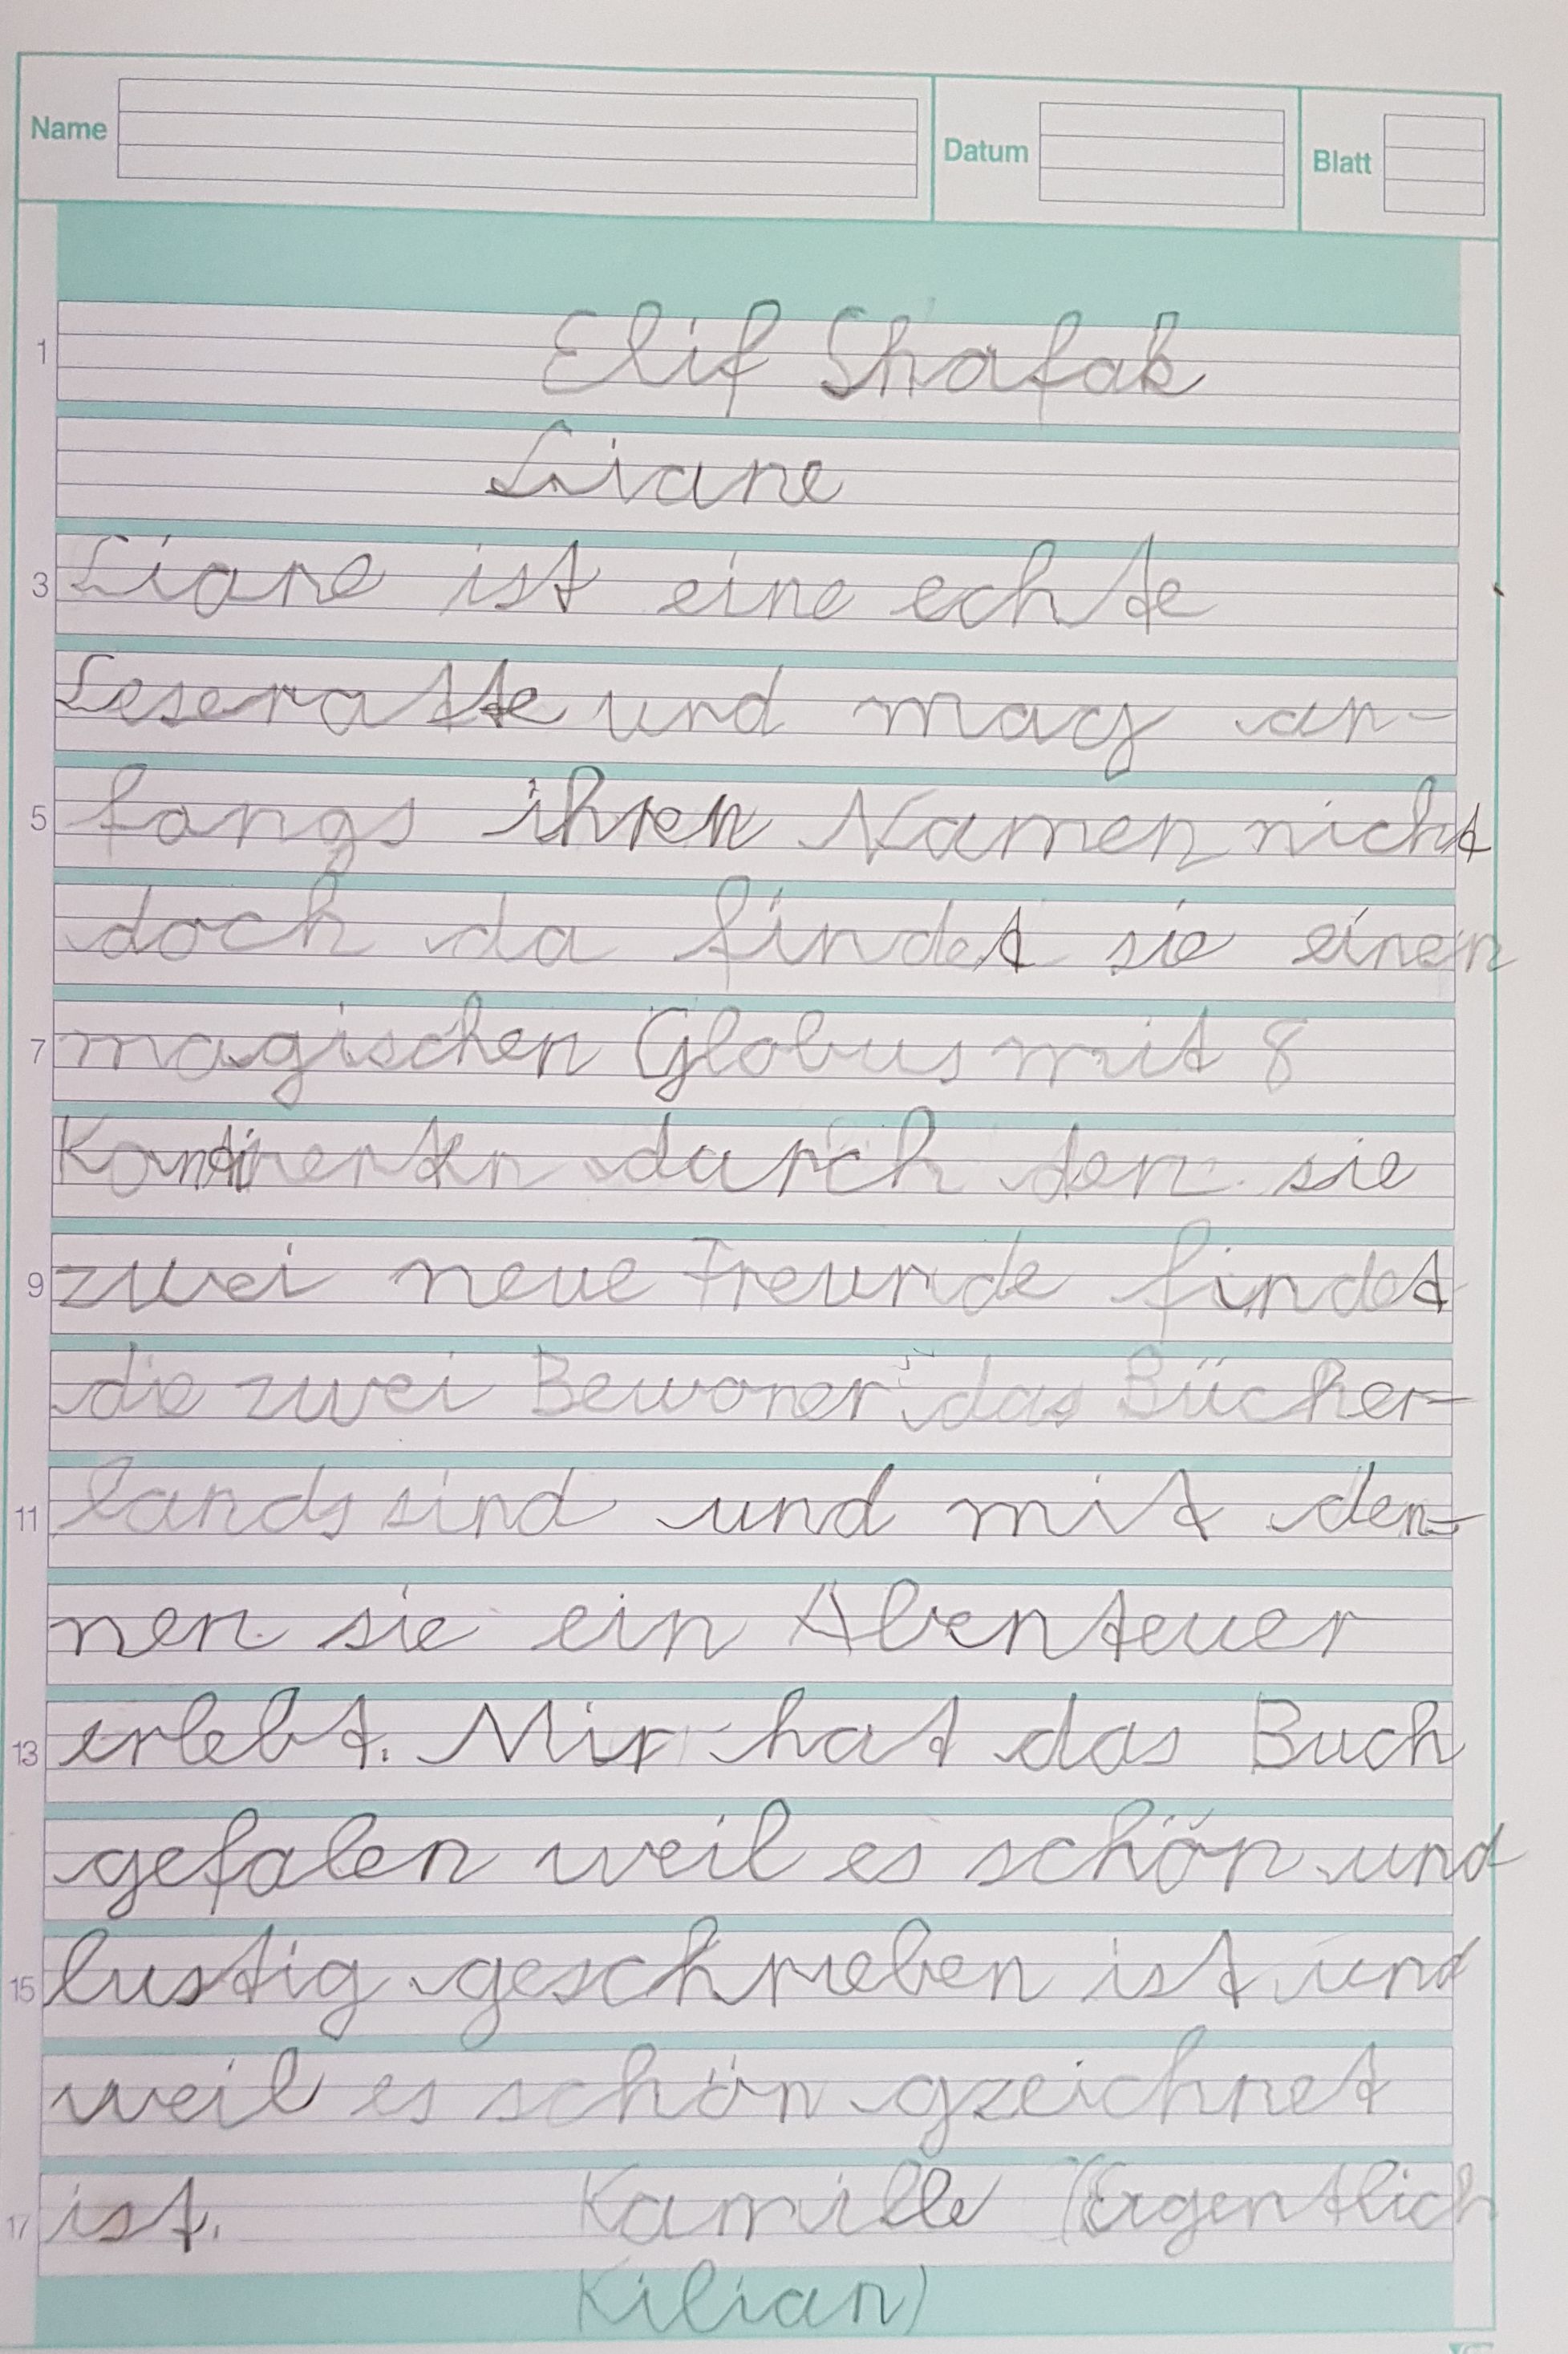 Name
Datum
Blatt
1
Elif Shafak
Liane
3 Liane ist eine echte
Leseratte und mag an-
5 fangs ihren Namen nicht
doch da findet sie einen
7 magischen Globus mit 8
Kontinentn durch den sie
9 zwei neue Freunde findet
die zwei Bewoner das Bücher-
11 lands sind und mit den-
nen sie ein Abenteuer
13 erlebt. Mir hat das Buch
gefalen weil es schön und
15 lustig geschrieben ist und
weil es schön gzeichnet
17 ist. Kamille (Eigentlich
Kilian)